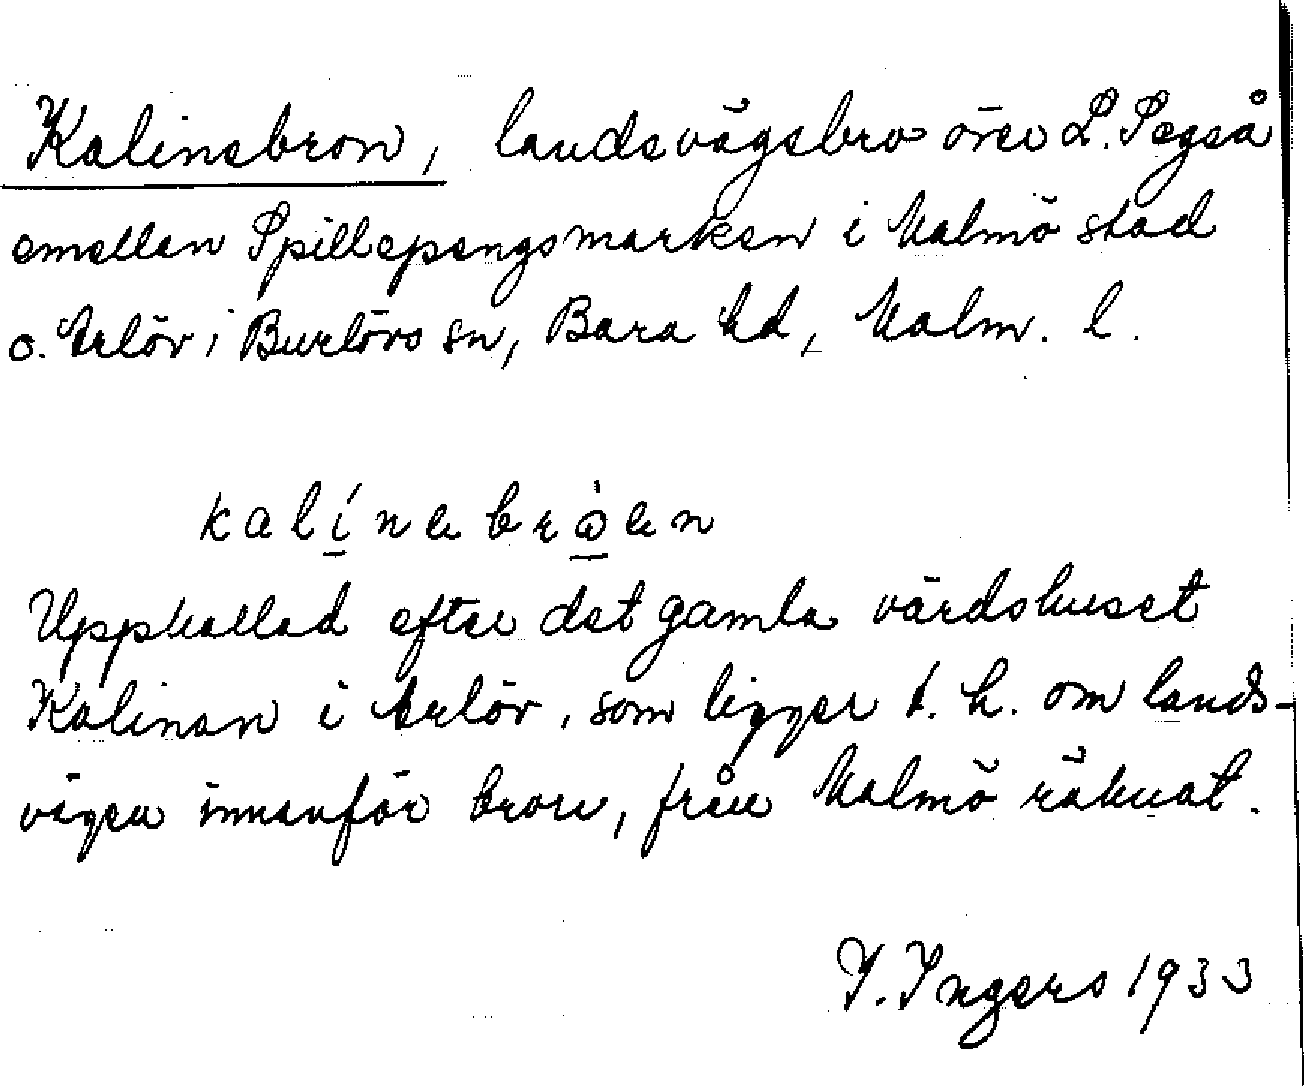 Kalinebron, landsvägsbro över L. Segeå
emellan Spillepengsmarken i Malmö stad
o. Arlöv i Burlövs sn, Bara hd, Malm. l.
kalínebròen
Uppkallad efter det gamla värdshuset
Kalinan i Arlöv, som ligger t. h. om lands-
vägen innanför bron, från Malmö räknat.
I. Ingers 1933